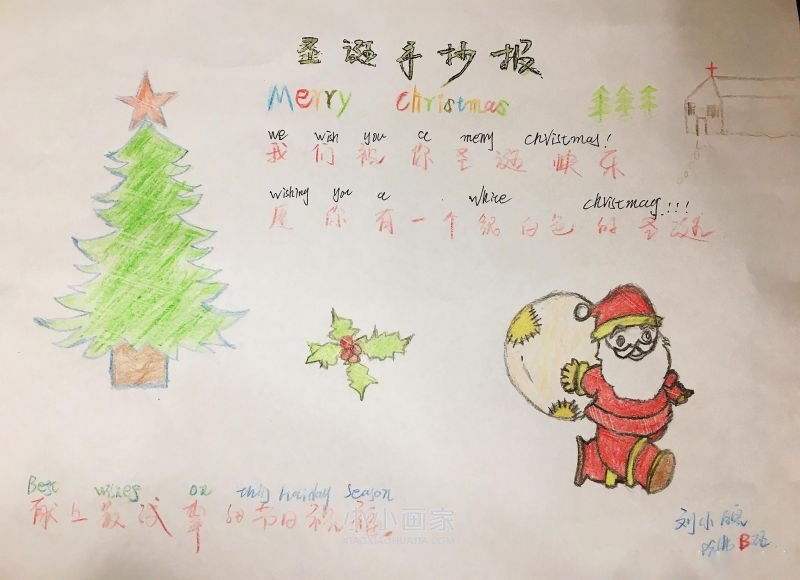 圣诞手抄报
Merry christmas
we wish you a merry christmas!
我们祝你圣诞快乐
wishing you a white christmas!!!
愿你有一个银白色的圣诞
Best wishes on this holiday season
献上最诚挚的节日祝福
小小画家
XIAOXIAOHUAJIA.COM
刘小
B